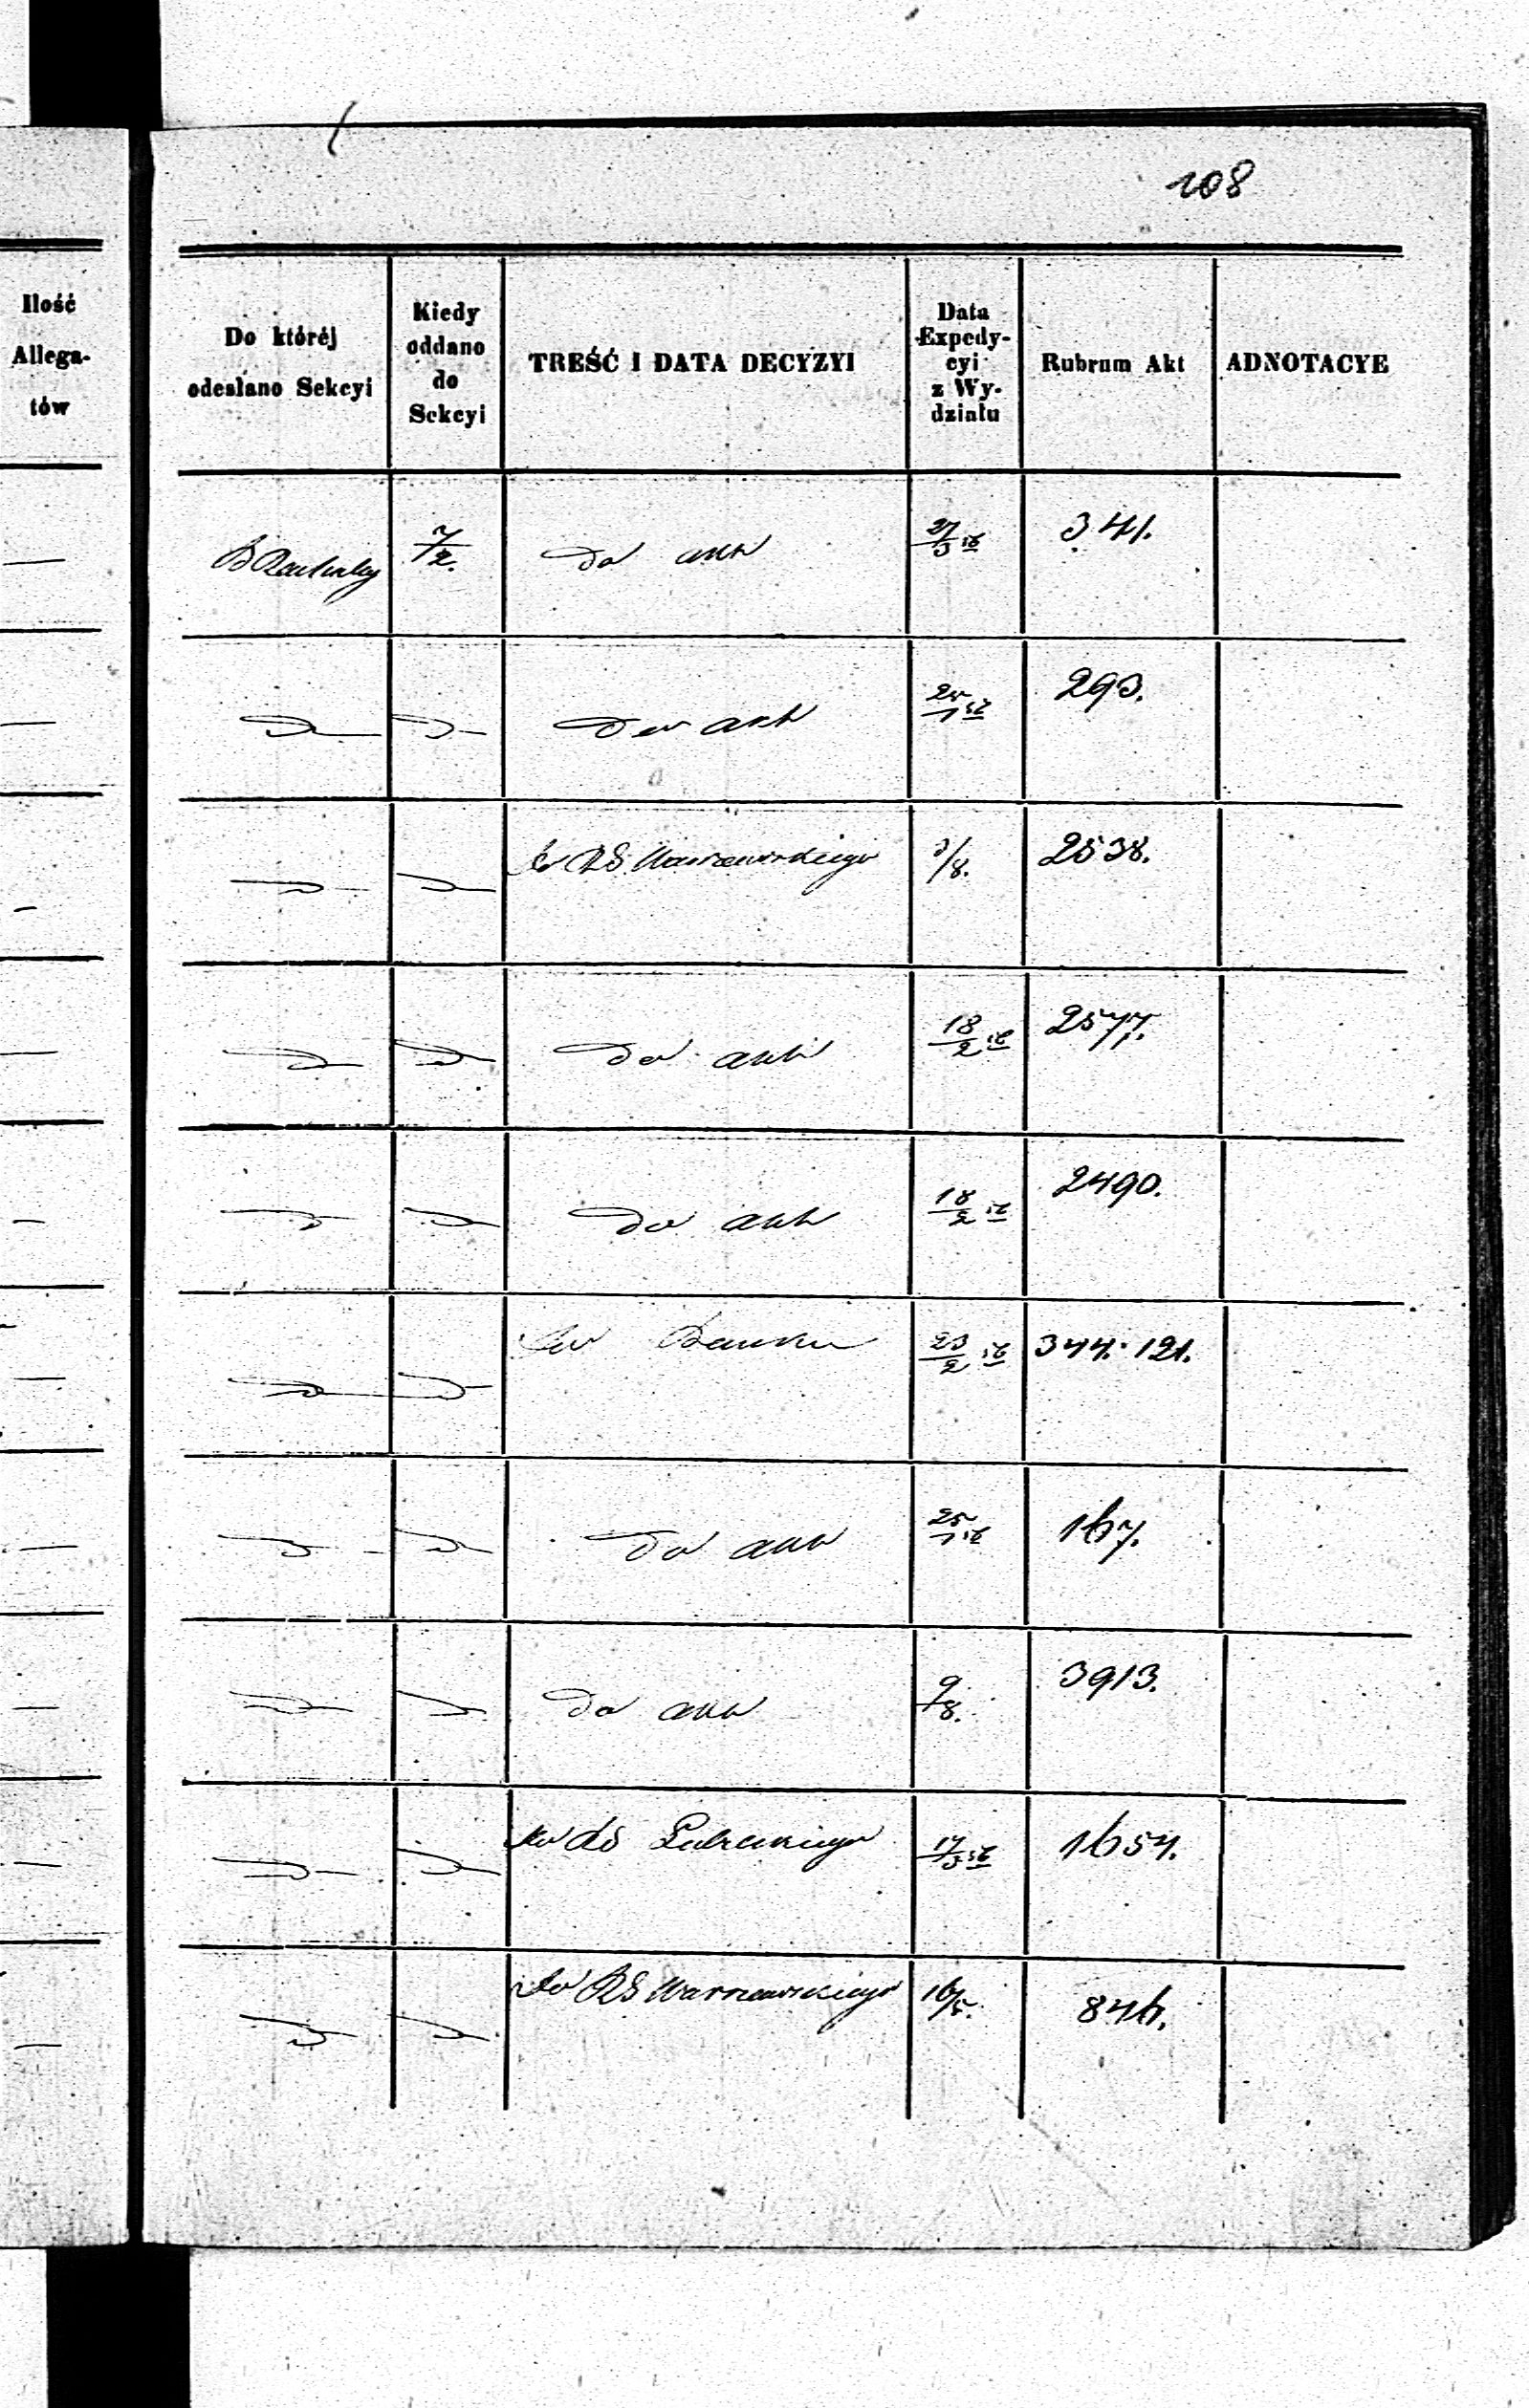 108
Ilość
Allega-
tów
Do któréj
odesłano Sekcyi
Kiedy
oddano
do
Sekcyi
TREŚĆ I DATA DECYZYI
Data
Expedy-
cyi
z Wy-
działu
Rubrum Akt
ADNOTACYE
7/2. do akt 27/3 341.
do akt 25/1 293.
do RS Warszawskiego 3/8. 2538.
do akt 18/2 2577.
do akt 18/2 2490.
do Banku 23/2 344. 121.
do akt 25/1 167.
do akt 9/8. 3913.
do 17/3 1657.
do RS Warszawskiego 16/5. 846.